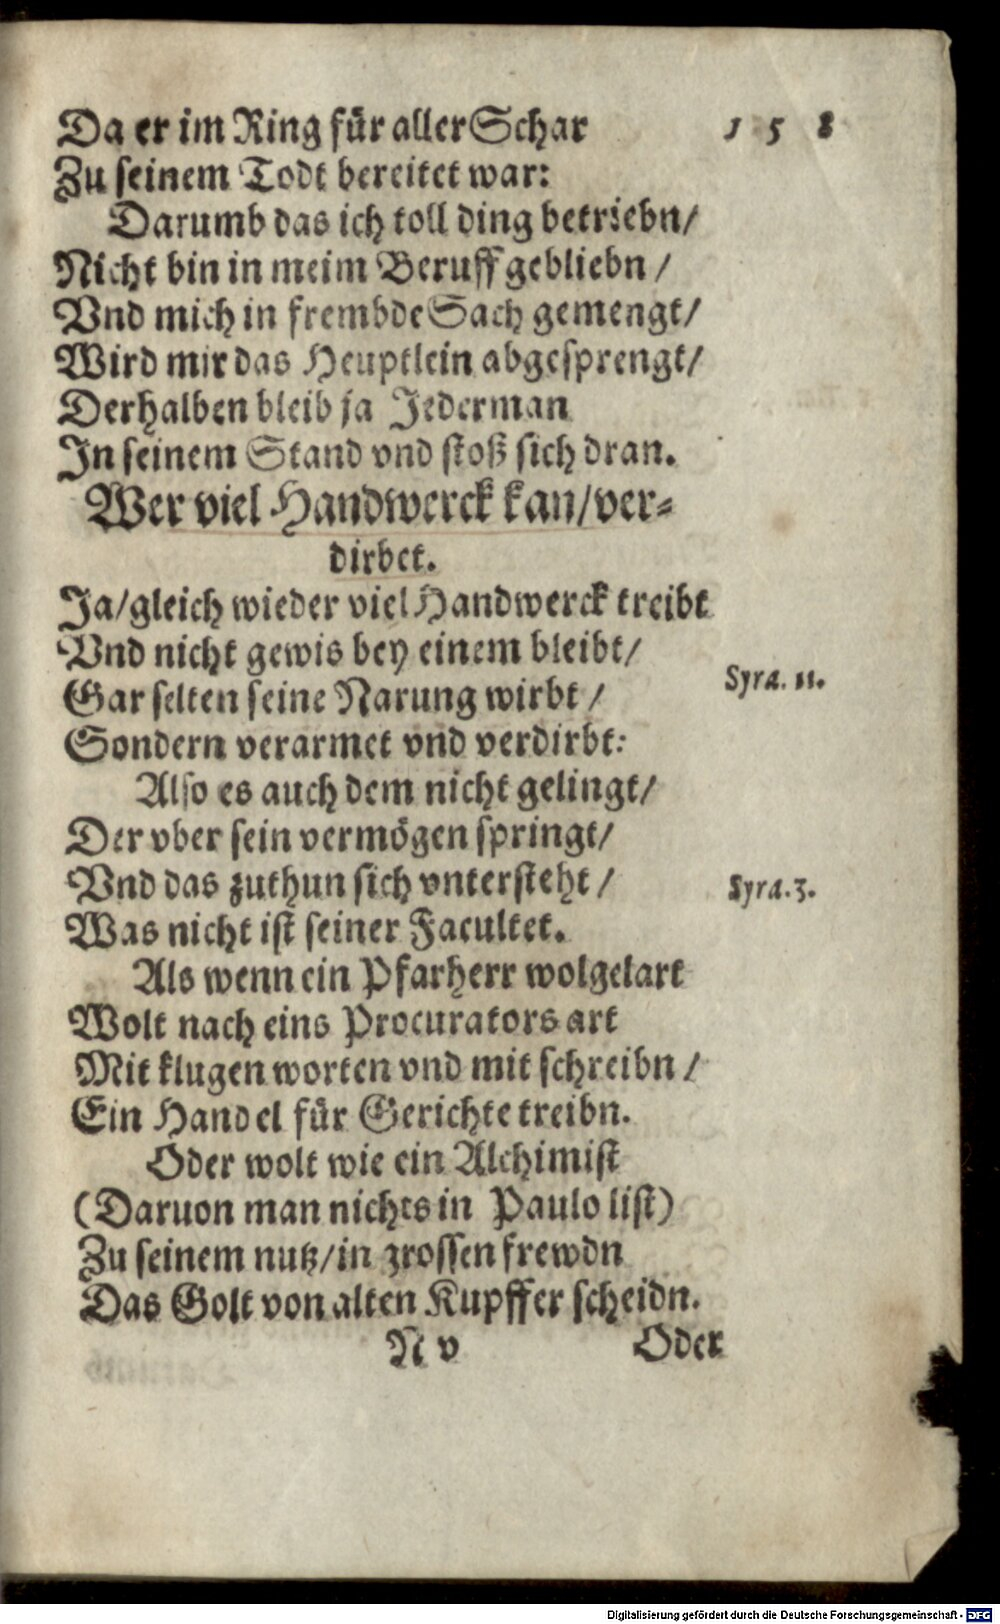 Da er im Ring für aller Schar 158
Zu seinem Todt bereitet war:
Darumb das ich toll ding betriebn/
Nicht bin in meim Beruff gebliebn/
Vnd mich in frembde Sach gemengt/
Wird mir das Heuptlein abgesprengt/
Derhalben bleib ja Jederman
In seinem Stand vnd stoß sich dran.
Wer viel Handwerck kan/ver-
dirbet.
Ja/gleich wie der viel Handwerck treibt
Vnd nicht gewis bey einem bleibt/
Gar selten seine Narung wirbt/
Syra. 11.
Sondern verarmet vnd verdirbt:
Also es auch dem nicht gelingt/
Der vber sein vermögen springt/
Vnd das zuthun sich vntersteht/
Syra. 3.
Was nicht ist seiner Facultet.
Als wenn ein Pfarherr wolgelart
Wolt nach eins Procurators art
Mit klugen worten vnd mit schreibn/
Ein Handel für Gerichte treibn.
Oder wolt wie ein Alchimist
(Daruon man nichts in Paulo list)
Zu seinem nutz/in grossen frewdn
Das Golt von alten Kupffer scheidn.
N v Oder
Digitalisierung gefördert durch die Deutsche Forschungsgemeinschaft - DFG